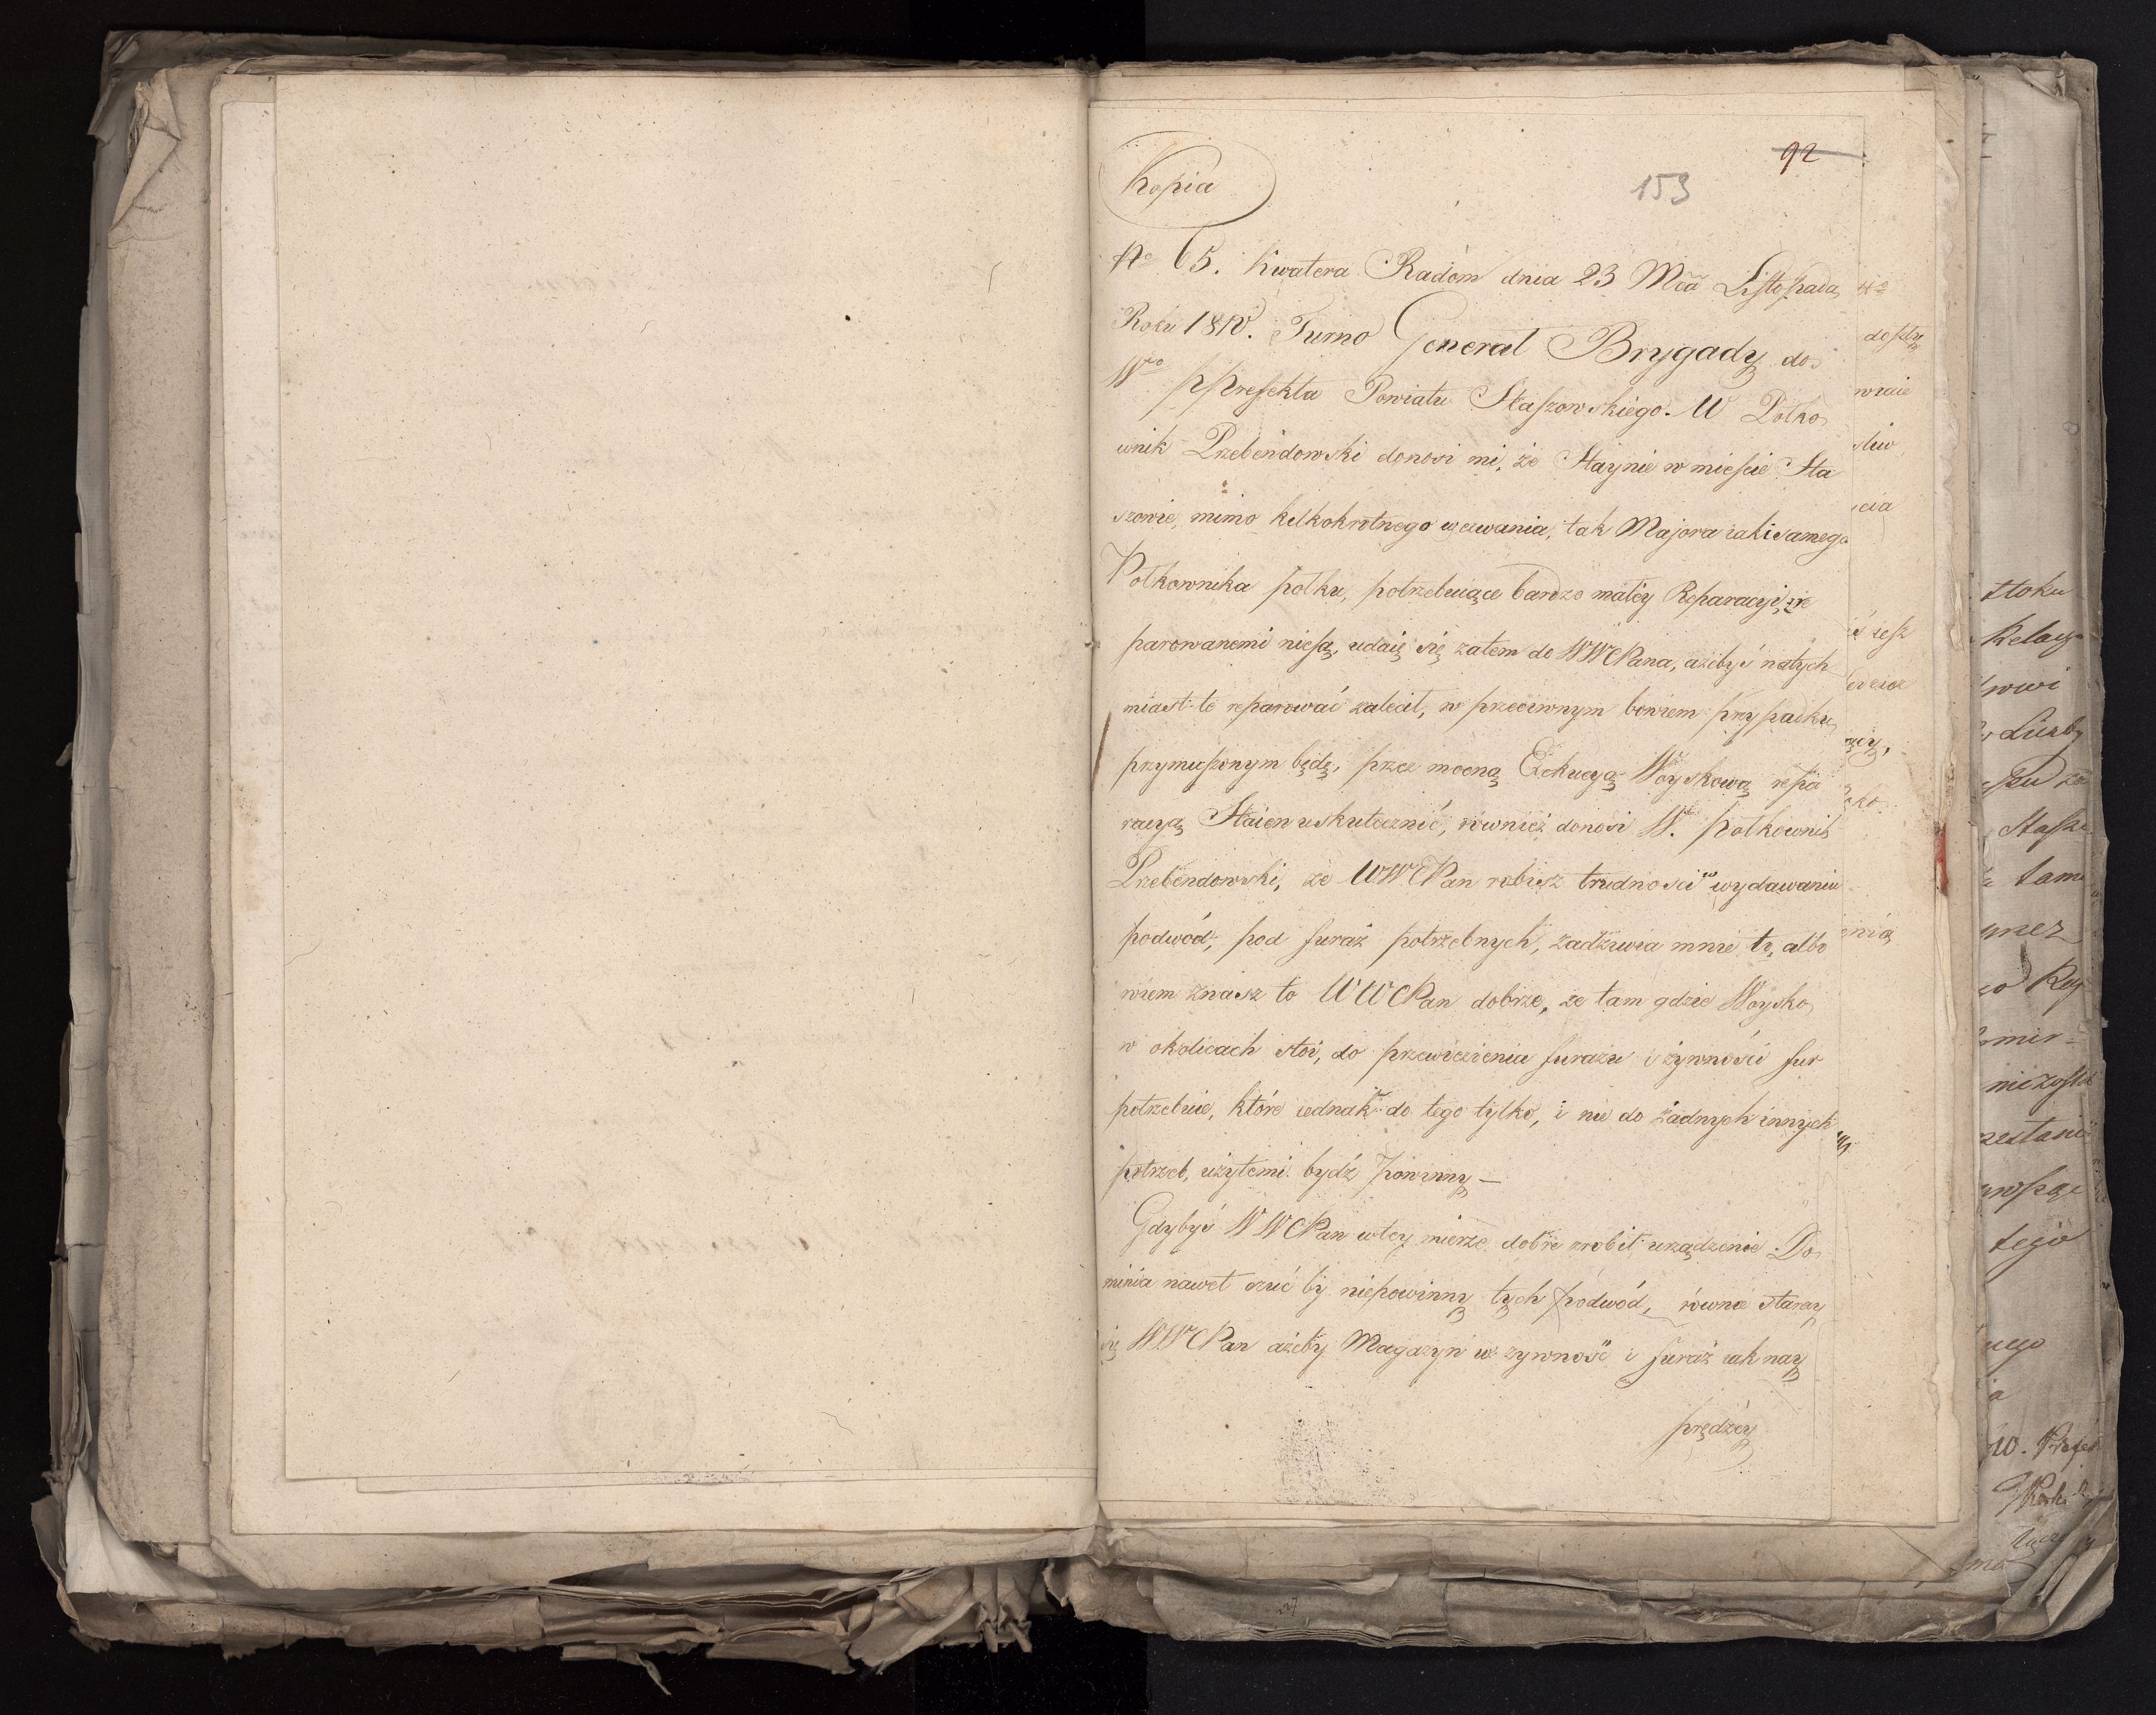 92
153
Kopia
No 65. Kwatera Radom dnia 23 Mca Listopada
Roku 1810. Turno General Brygady do
Wgo pprefekta Powiatu Staszowskiego. W Półko
wnik Przebendowski donosi mi, że Staynie w mieście Sta
szowie, mimo kilkokrotnego wezwania, tak Majora iak i samego
Połkownika połku, potrzebuiące bardzo małey Reparacyi, re
parowanemi niesą, udaię się zatem do WWCPana, ażebyś natych
miast te reparować zalecił, w przeciwnym bowiem przypadku
przymuszonym będę, przez mocną Exekucyą Woyskową repa
racyą Staien uskutecznić, rownież donosi W. połkownik
Przebendowski, ze WWCPan robisz trudności w wydawaniu
podwód, pod furaż potrzebnych, zadziwia mnie to, albo
wiem znasz to WWCPan dobrze, ze tam gdzie Woysko
w okolicach stoi, do przewiezienia furażu i żywności fur
potrzebuie, które iednak do tego tylko, i nie do żadnych innych
potrzeb, użytemi bydź powinny —
Gdybyś WWCPan w tey mierze dobre zrobił urządzenie Do
minia nawet czuć by niepowinny tych podwód, równie staray
się WWCPan ażeby Magazyn w zywność i furaż iak nay
prędzéy